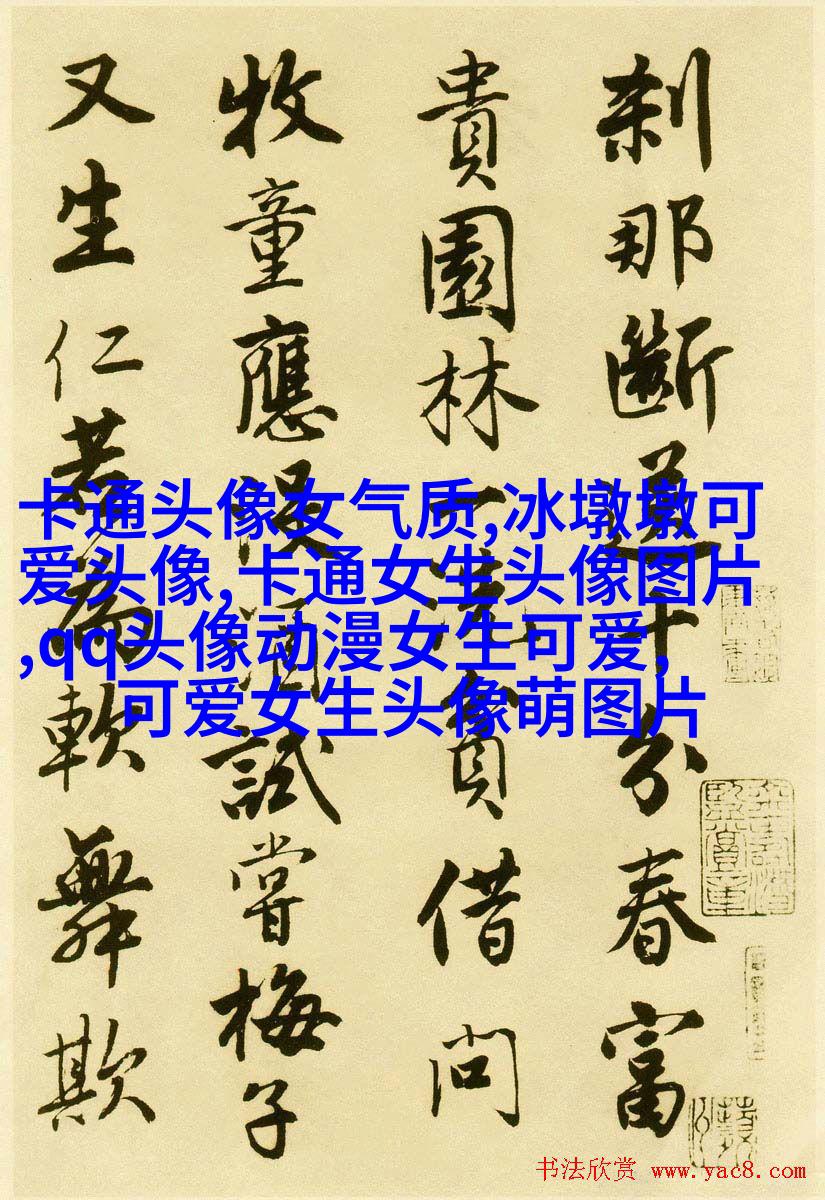 刹那斷送十分春富
貴園林一洗貧借問
牧童應没酒試嘗梅子
又生仁若為軟舞欺
卡通头像女气质,冰墩墩可
爱头像,卡通女生头像图片
,qq头像动漫女生可爱,
可爱女生头像萌图片
书法欣赏 www.yac8.com